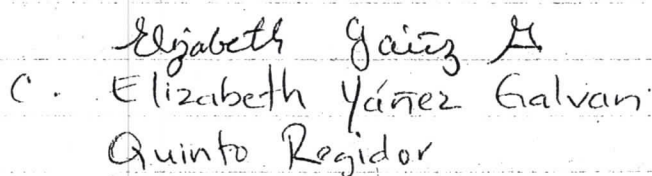 Elizabeth Yáñez G
C. Elizabeth Yáñez Galvan
Quinto Regidor